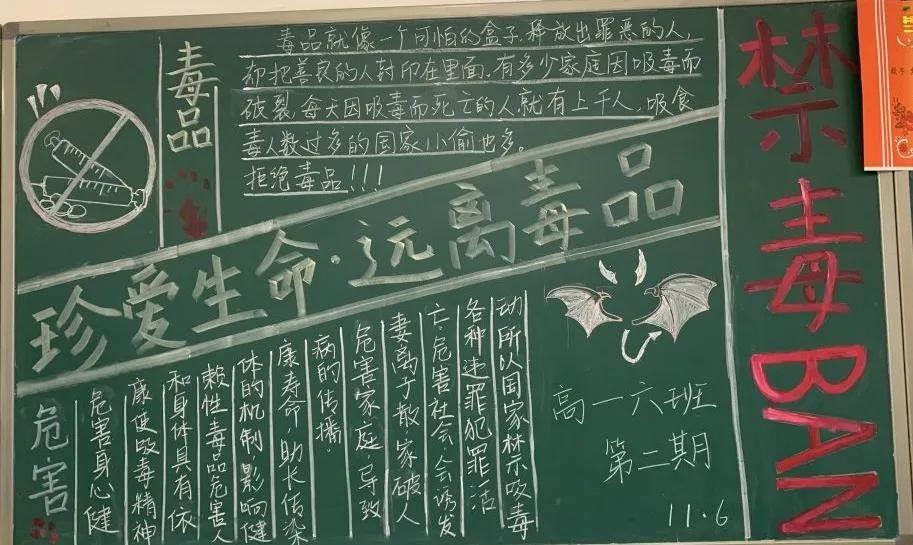 毒品
毒品就像一个可怕的盒子.释放出罪恶的人,
却把善良的人封印在里面.有多少家庭因吸毒而
破裂.每天因吸毒而死亡的人就有上千人,吸食
毒人数过多的国家小偷也多。
拒绝毒品!!!
珍爱生命·远离毒品
危害
危害身心健
康使毁毒精神
和身体具有依
赖性毒品危害人
体的机制影响健
康寿命,助长传染
病的传播.
危害家庭 导致
妻离子散家破人
亡.危害社会会诱发
各种违罪犯罪活
动所以国家禁示吸毒
高一六班
第二期
11.6
禁毒BAN